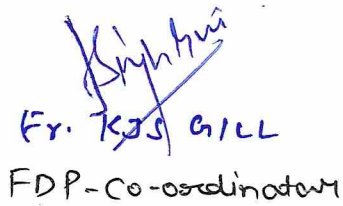 Er. KJS GILL
FDP-Co-ordinator